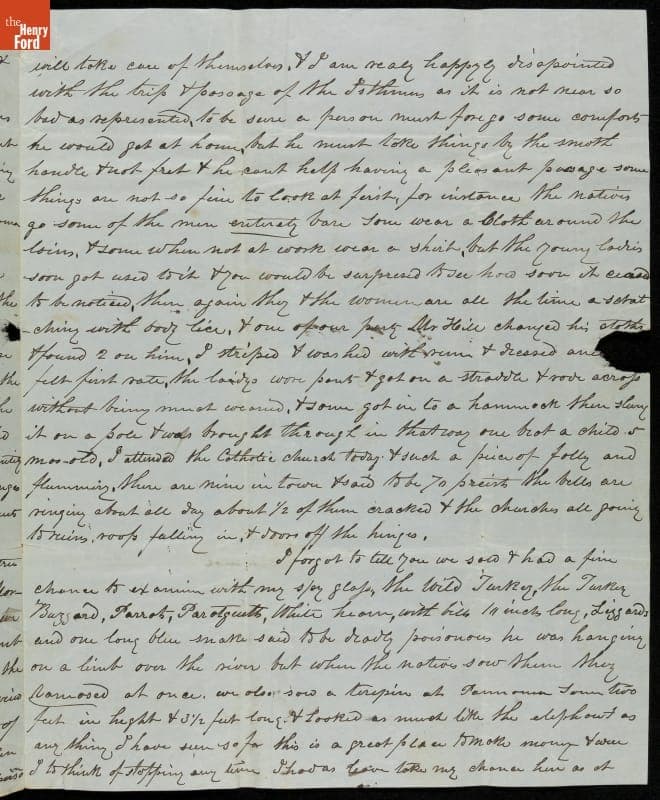 the
Henry
Ford
will take care of themselves. & I am realy happyly disapointed
with the trip & passage of the Isthmus as it is not near so
bad as represented, to be sure a person must forego some comforts
he would get at home, but he must take things by the smoth
handle & not fret & he cant help having a pleasant passage some
things are not so fine to look at first, for instance the natives
go some of the men entirely bare some wear a Cloth around the
loins, & some when not at work wear a shirt, but the young ladies
soon got used to it & you would be surprised to see how soon it ceased
to be noticed, then again they & the women are all the time a scrat
ching with body lice, & one of our party Mr Hill changed his cloths
& found 2 on him, I striped & washed with rum & dressed and
felt first rate, the laidys wore pants & got on a straddle & rode across
without being much wearied, & some got in to a hammock then slung
it on a pole & was brought through in that way one but a child 5
mos old, I attended the Catholic church today & such a piece of folly and
flummery, there are nine in town & said to be 70 preists the bells are
ringing about all day about 1/2 of them cracked & the churches all going
to ruins, roofs falling in, & doors off the hinges.
I forgot to tell you we saw & had a fine
chance to examin with my spy glass, the Wild Turkey, the Turkey
Buzzard, Parrot, Parotquetts, White hearn, with bills 10 inches long, Lizzards
and one long blue snake said to be deadly poisonous he was hanging
on a limb over the river but when the natives saw them they
vamosed at once. we also saw a terepin at Pannama some two
feet in hight & 3 1/2 feet long, & looked as much like the elephant as
any thing I have seen so far this is a great place to make money & were
I to think of stopping any time I had as leave take my chance here as at